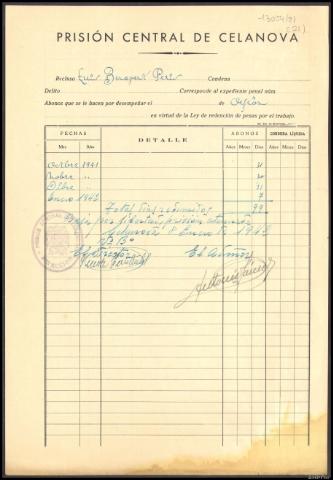 13054/21
(21)
PRISIÓN CENTRAL DE CELANOVA
Recluso Luis Condena
Delito Corresponde al expediente penal núm.
Abonos que se le hacen por desempeñar el de
en virtud de la Ley de redención de penas por el trabajo.
FECHAS DETALLE ABONOS CONDENA LÍQUIDA
Mes Año Años Meses Días Años Meses Días
Octbre 1941 31
Nobre " 30
Dbre " 31
Enero 1942 7
Total días redimidos 99
Baja por libertad
Celanova 8 Enero de 1942
Vº Bº
El Director El
Antonio